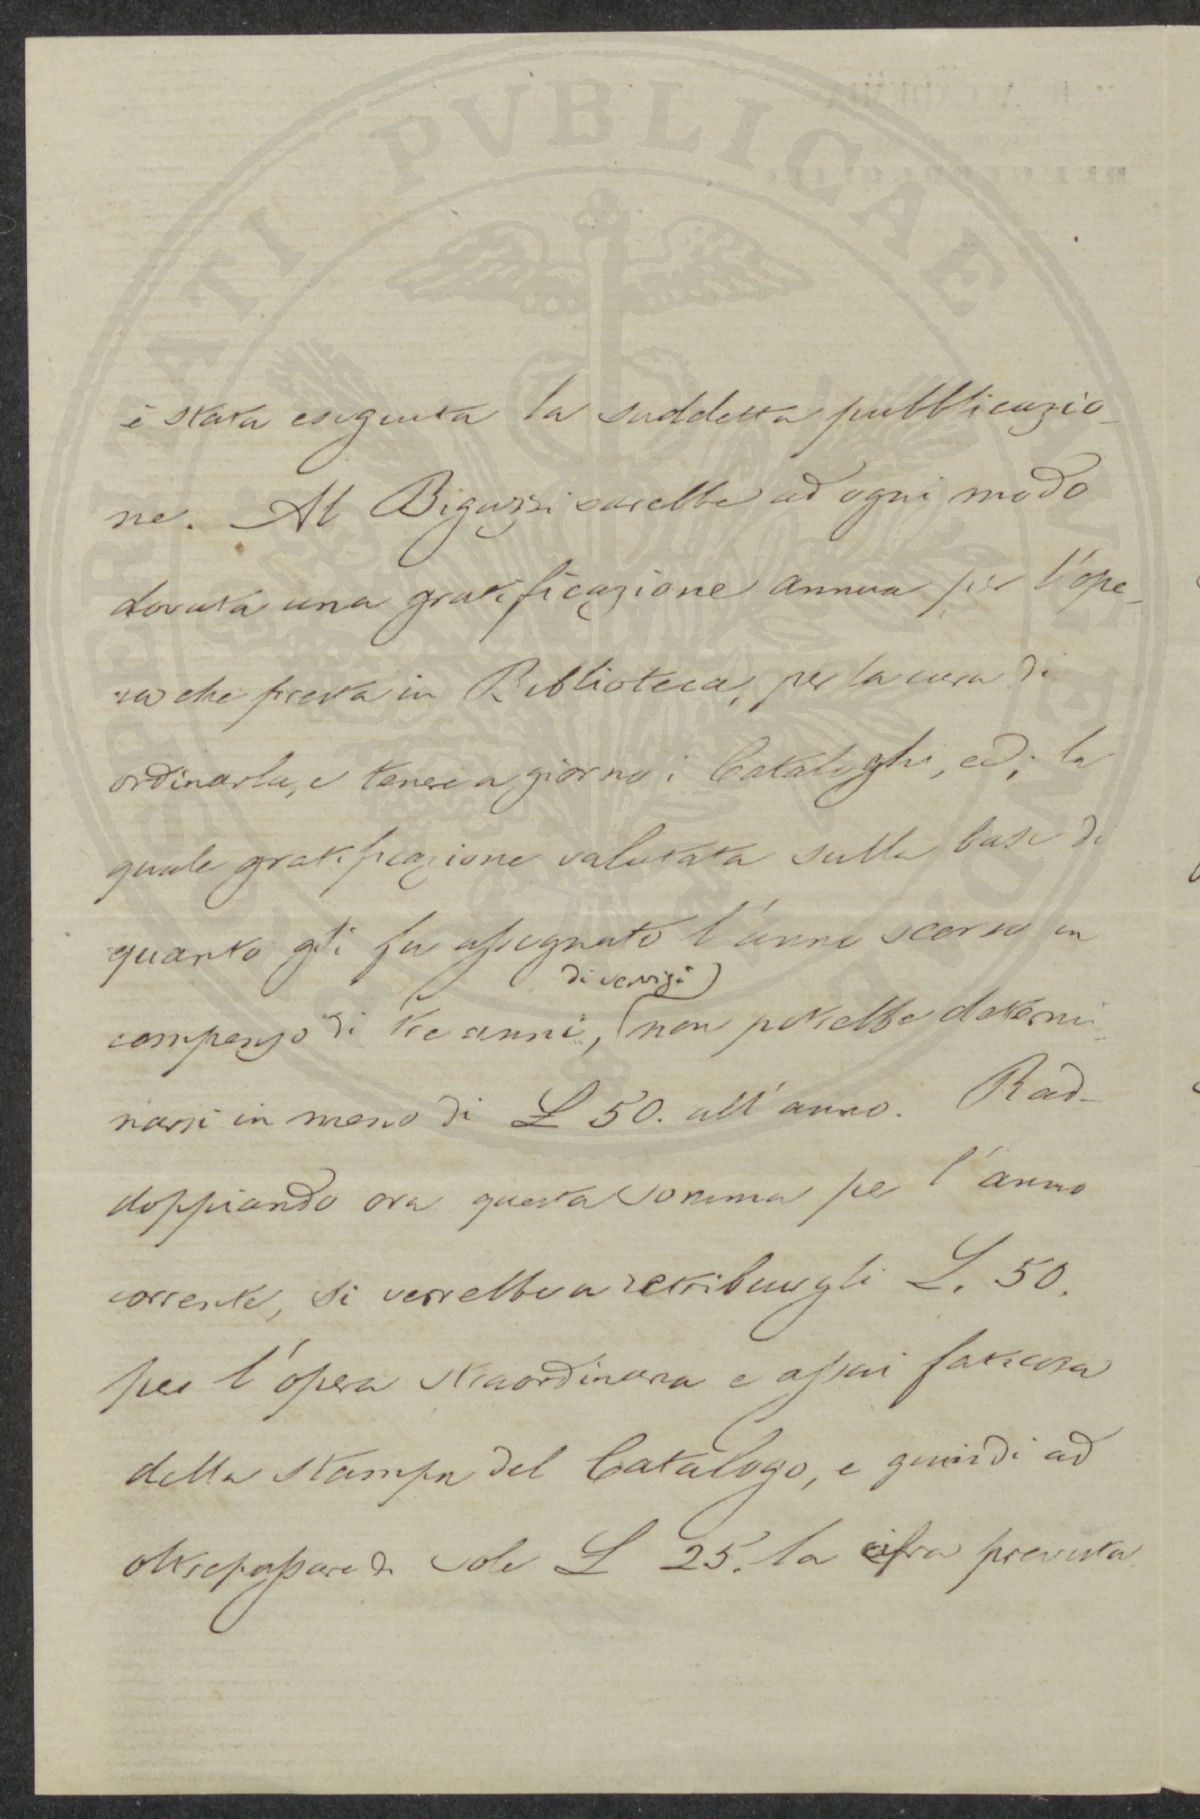 PROSPERITATI PVBLICAE AVGENDAE
è stata eseguita la suddetta pubblicazio-
ne. Al Bigazzi sarebbe ad ogni modo
dovuta una gratificazione annua per l'ope-
ra che presta in Biblioteca, per la cura di
ordinarla, e tenere a giorno i Cataloghi, ed; la
quale gratificazione valutata sulla base di
quanto gli fu assegnato l'anno scorso in
di servizi
compenso di tre anni, non potrebbe determi-
narsi in meno di L 50. all'anno. Rad-
doppiando ora questa somma per l'anno
corrente, si verrebbe a retribuirgli L. 50.
per l'opera straordinaria e assai faticosa
della stampa del Catalogo, e quindi ad
oltrepassare di sole L 25. la cifra prevista